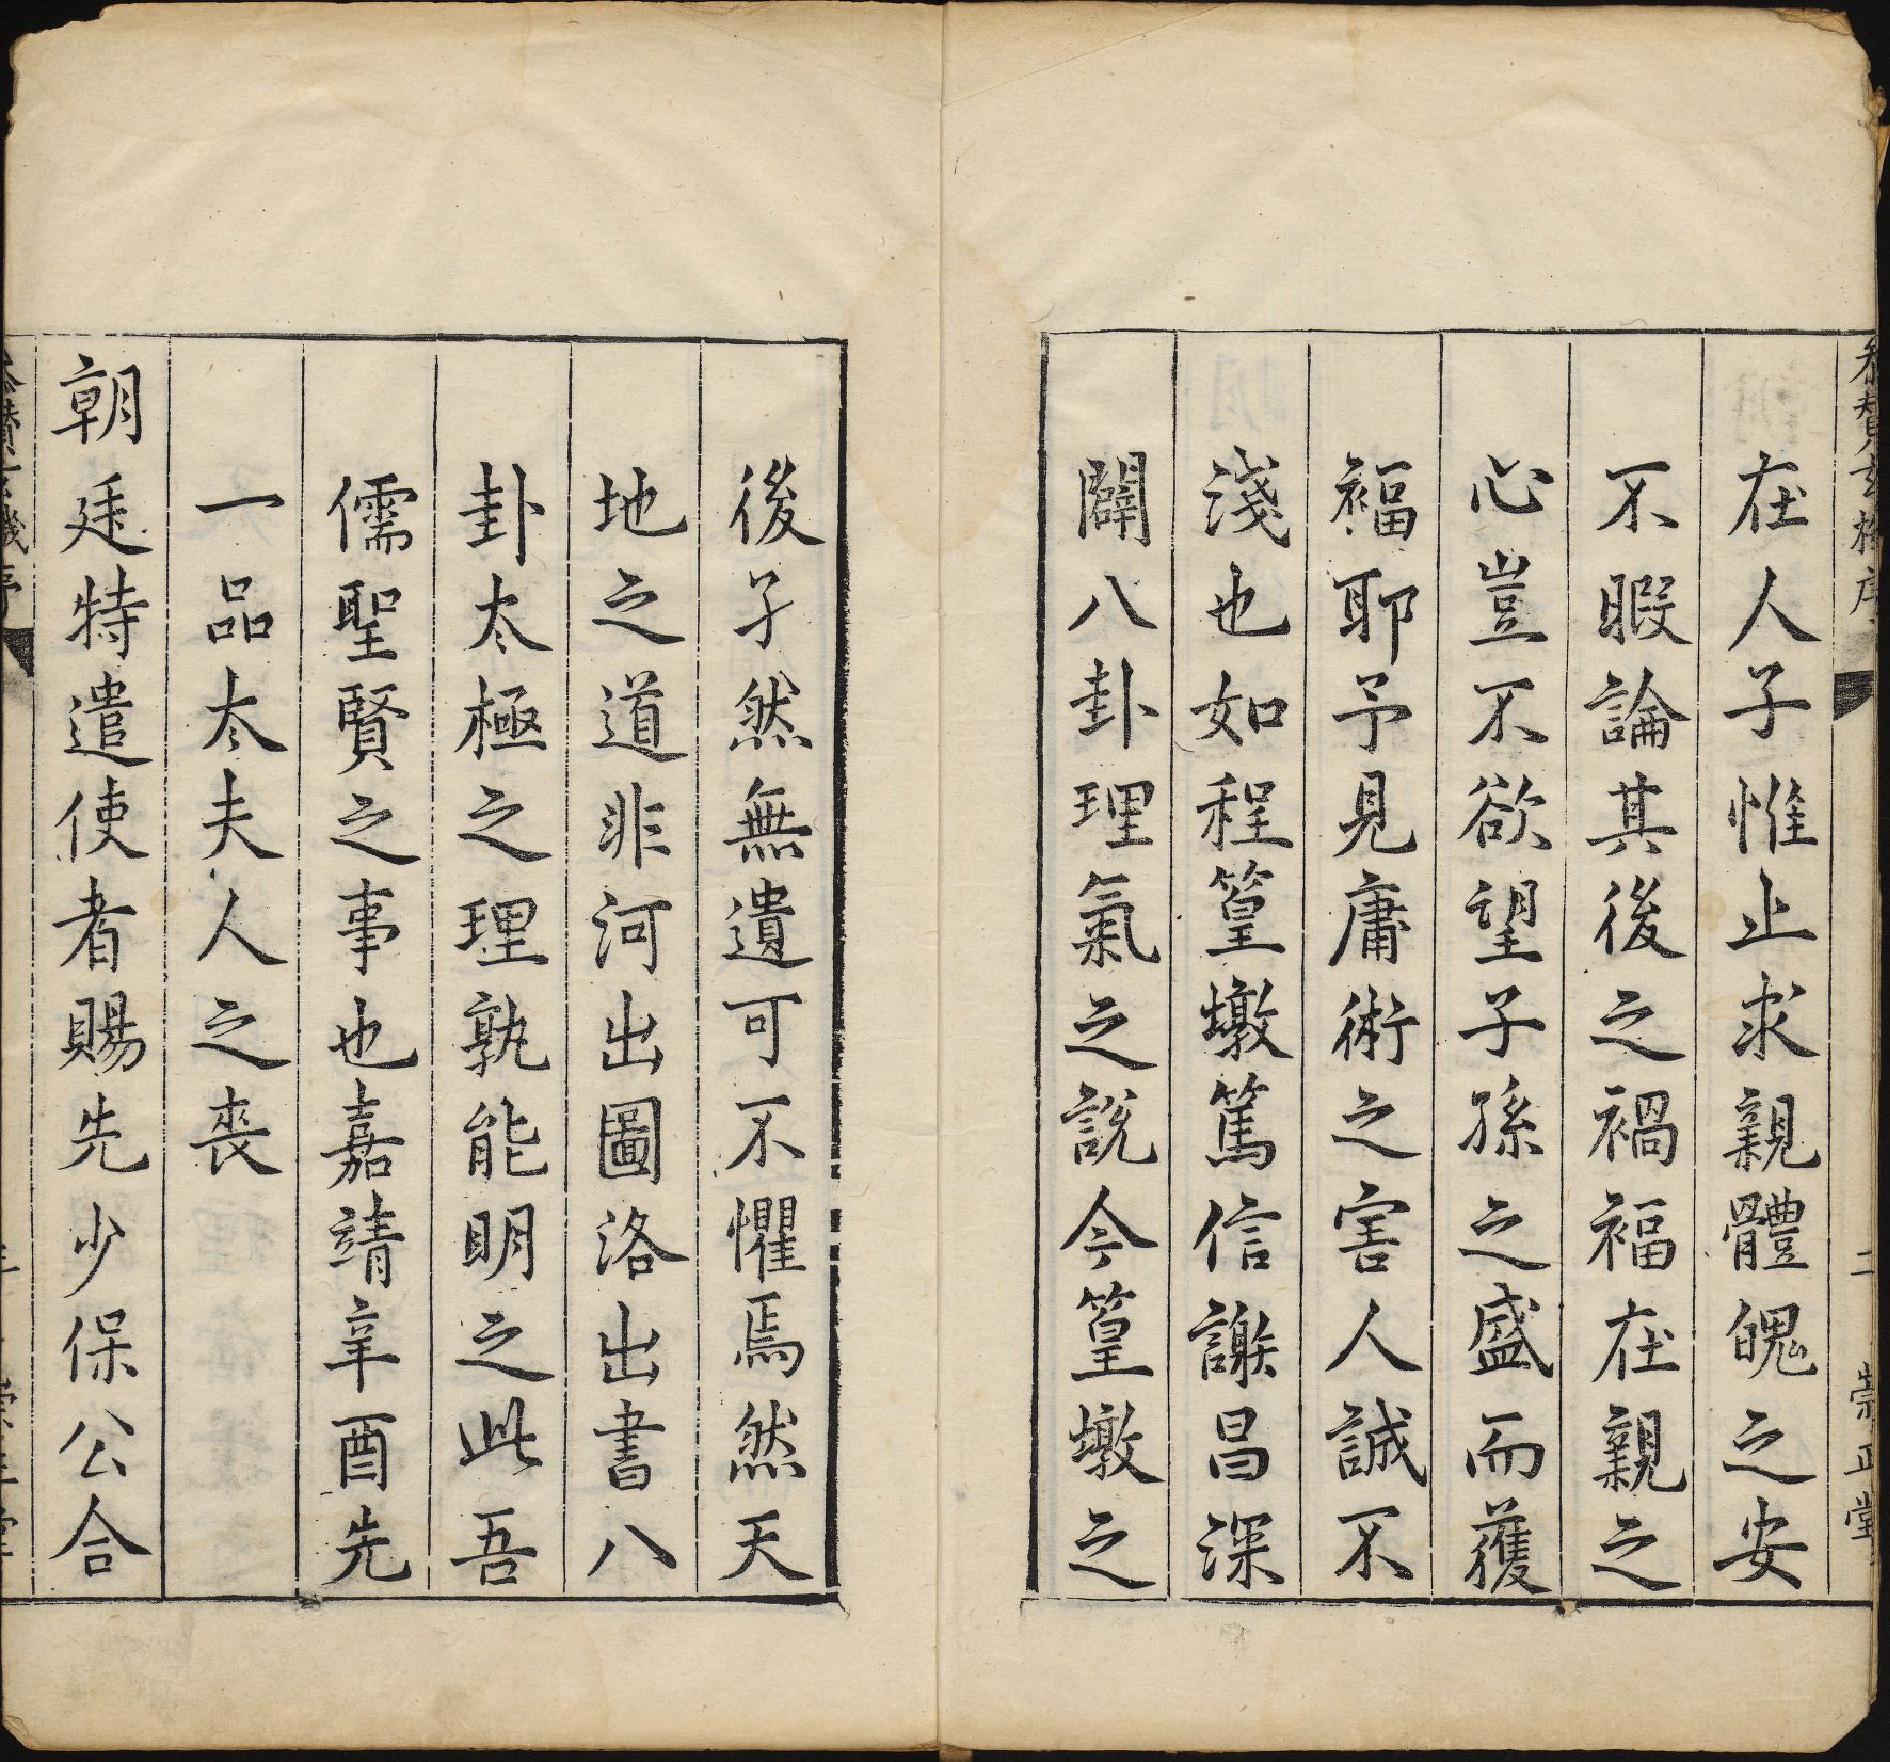 參贊玄機序 二 崇正堂
在人子惟止求親體魄之安
不暇論其後之禍福在親之
心豈不欲望子孫之盛而獲
福耶予見庸術之害人誠不
淺也如程篁墩篤信謝昌深
闢八卦理氣之說今篁墩之
後孑然無遺可不懼焉然天
地之道非河出圖洛出書八
卦太極之理孰能明之此吾
儒聖賢之事也嘉靖辛酉先
一品太夫人之喪
朝廷特遣使者賜先少保公合